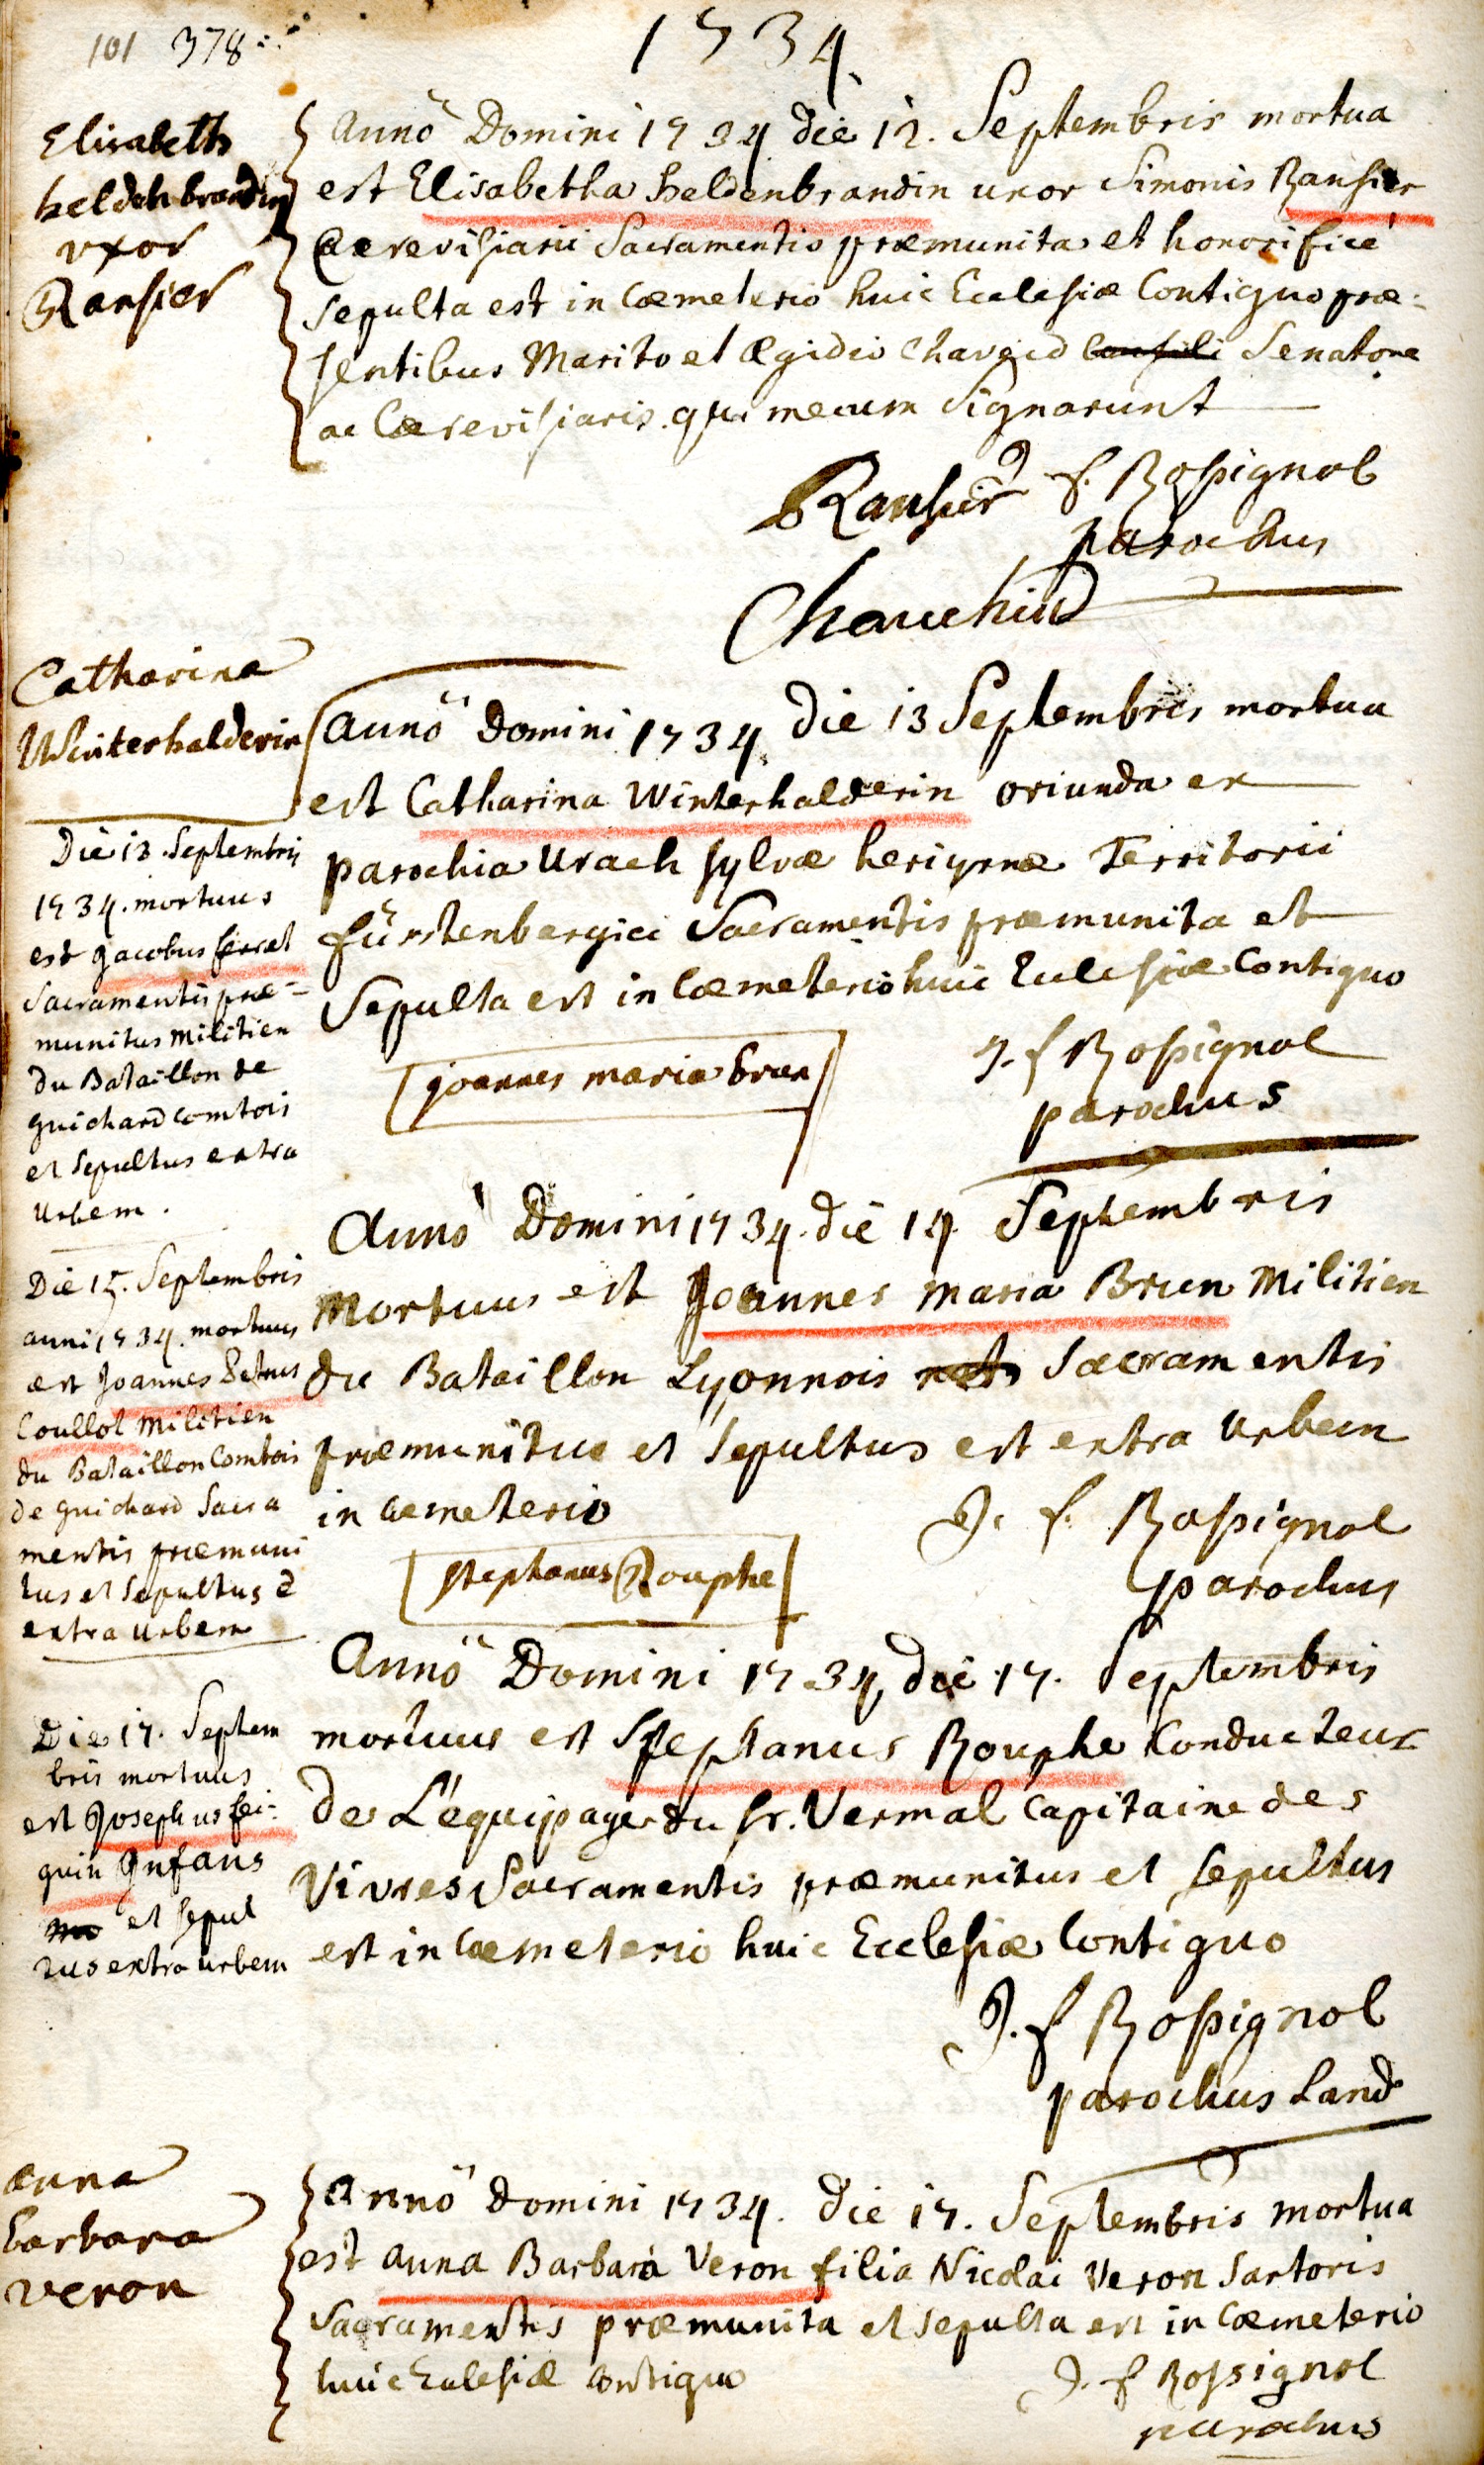 101 378
1734
Elisabeth
heldenbrandin
uxor
Ransier
Anno Domini 1734 die 12. Septembris mortua
est Elisabetha heldenbrandin uxor Simonis Ransier
Cerevisiarii Sacramentis præmunita et honorifice
sepulta est in Cœmeterio huic Ecclesiæ Contiguo præ-
sentibus Marito et Ægidio Senatore
ac Cærevisiaris qui mecum Signarunt
Ransier f. Rossignol
parochus
Catharina
Winterhalderin
Anno Domini 1734 die 13 Septembris mortua
est Catharina Winterhalderin oriunda ex
parochia Urach sylvæ hericynæ Territorii
fürstenbergici Sacramentis præmunita et
Sepulta est in Cœmeterio huic Ecclesiæ Contiguo
J. f Rossignol
parochus
Die 13 Septembris
1734. mortuus
est Jacobus ferret
Sacramentis præ-
munitus Militien
du Bataillon de
guichard comtois
et Sepultus extra
Urbem.
joannes maria brun
Anno Domini 1734. die 14 Septembris
Mortuus est Joannes Maria Brun Militien
du Bataillon Lyonnois Sacramentis
præmunitus et Sepultus est extra Urbem
in Cœmeterio
J. f. Rossignol
parochus
Die 15. Septembris
anni 1734. mortuus
est Joannes Petrus
Coullot Militien
du Bataillon Comtois
de guichard Sacra
mentis præmuni
tus et Sepultus
extra Urbem
stephanus Rouphe
Anno Domini 1734 die 17. Septembris
mortuus est Stephanus Rouphe Conducteur
de L'equipage du Sr. Vermal Capitaine des
Vivres Sacramentis præmunitus et Sepultus
est in Cœmeterio huic Ecclesiæ Contiguo
J. f Rossignol
parochus Land
Die 17. Septem
bris mortuus
est Josephus fei-
quin Infans
et Sepul
tus extra urbem
Anna
barbara
veron
Anno Domini 1734. die 17. Septembris mortua
est Anna Barbara Veron filia Nicolai Veron Sartoris
Sacramentis præmunita et sepulta est in Cœmeterio
huic Ecclesiæ Contiguo
J. f Rossignol
parochus